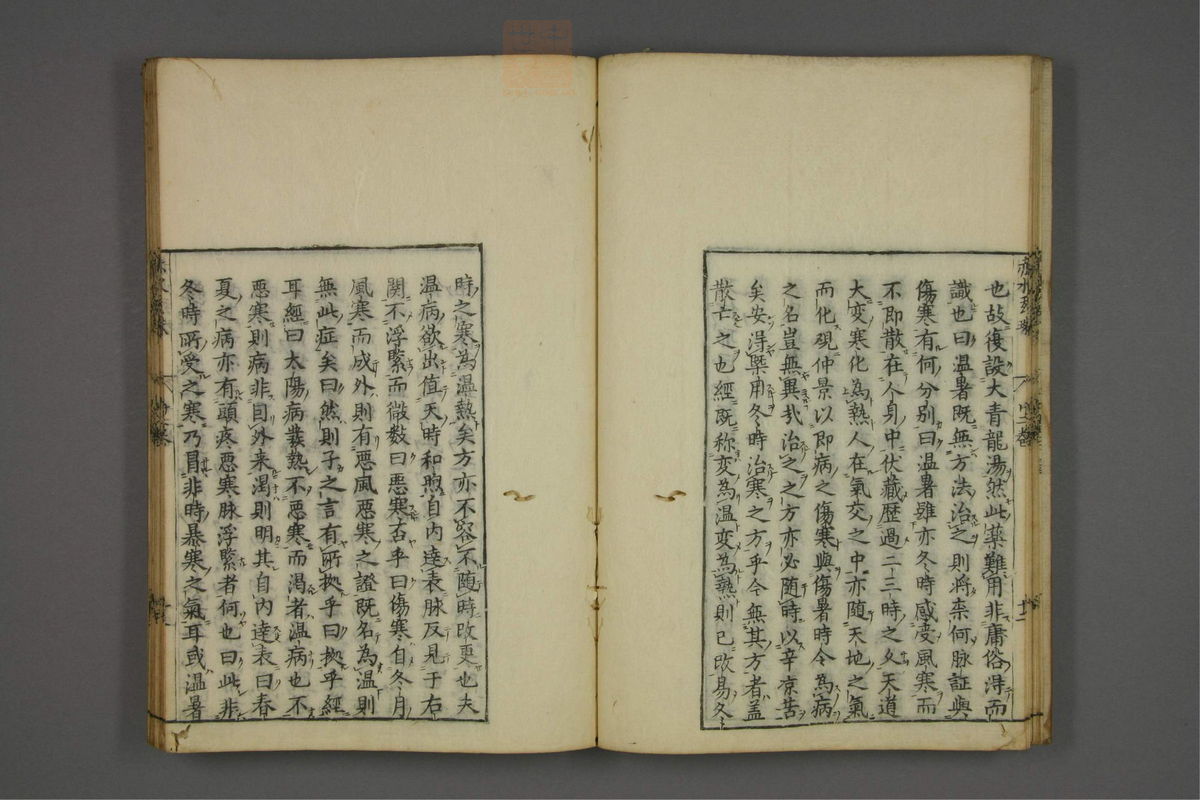 也故復設大青龍湯然此藥難用非庸俗淂而
識也曰温暑既無方法治之則將柰何脉証與
傷寒有何分別曰温暑雖亦冬時感受風寒而
不即散在人身中伏藏歴過二三時之久天道
大変寒化為熱人在氣交之中亦随天地之氣
而化覌仲景以即病之傷寒與傷暑時令為病
之名豈無異㢤治之之方亦必随時以辛凉苦
矣安淂槩用冬時治寒之方乎今無其方者盖
散亡之也經既称変為温変為熱則已改易冬
時之寒為温熱矣方亦不容不随時改更也夫
温病欲出值天時和煦自内達表脉反見于右
関不浮緊而微数曰悪寒否乎曰傷寒自冬月
風寒而成外則有悪風悪寒之證既名為温則
無此症矣曰然則子之言有所拠乎曰拠乎經
耳經曰太陽病發熱不悪寒而渇者温病也不
悪寒則病非自外来渇則明其自内達表曰春
夏之病亦有頭疼悪寒脉浮緊者何也曰此非
冬時所受之寒乃冒非時暴寒之氣耳或温暑